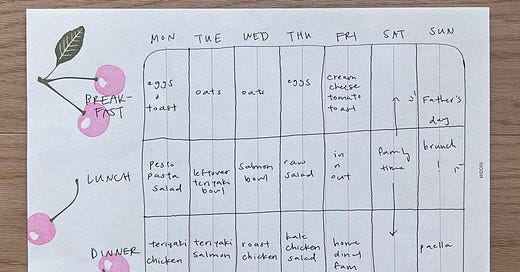 MON TUE WED THU FRI SAT SUN
BREAK-
FAST
eggs
+
toast
oats
oats
eggs
cream
cheese
tomato
toast
Father's
day
brunch
!
LUNCH
pesto
pasta
salad
leftover
teriyaki
bowl
salmon
bowl
raw
salad
in
n
out
family
time
DINNER
teriyaki
chicken
teriyaki
salmon
roast
chicken
kale
chicken
salad
home
paella
MIDORI